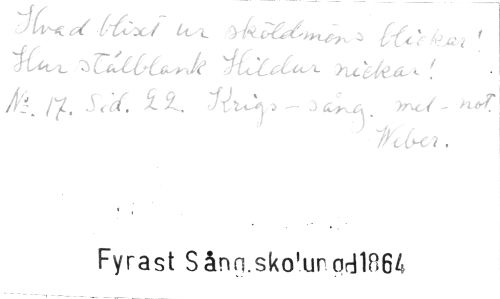 Hvad blixt ur sköldmöns blickar!
Hur stålblank Hildur nickar!
No. 17. Sid. 22. Krigs-sång. mel-not.
Weber.
Fyrast Sång.skolungd1864